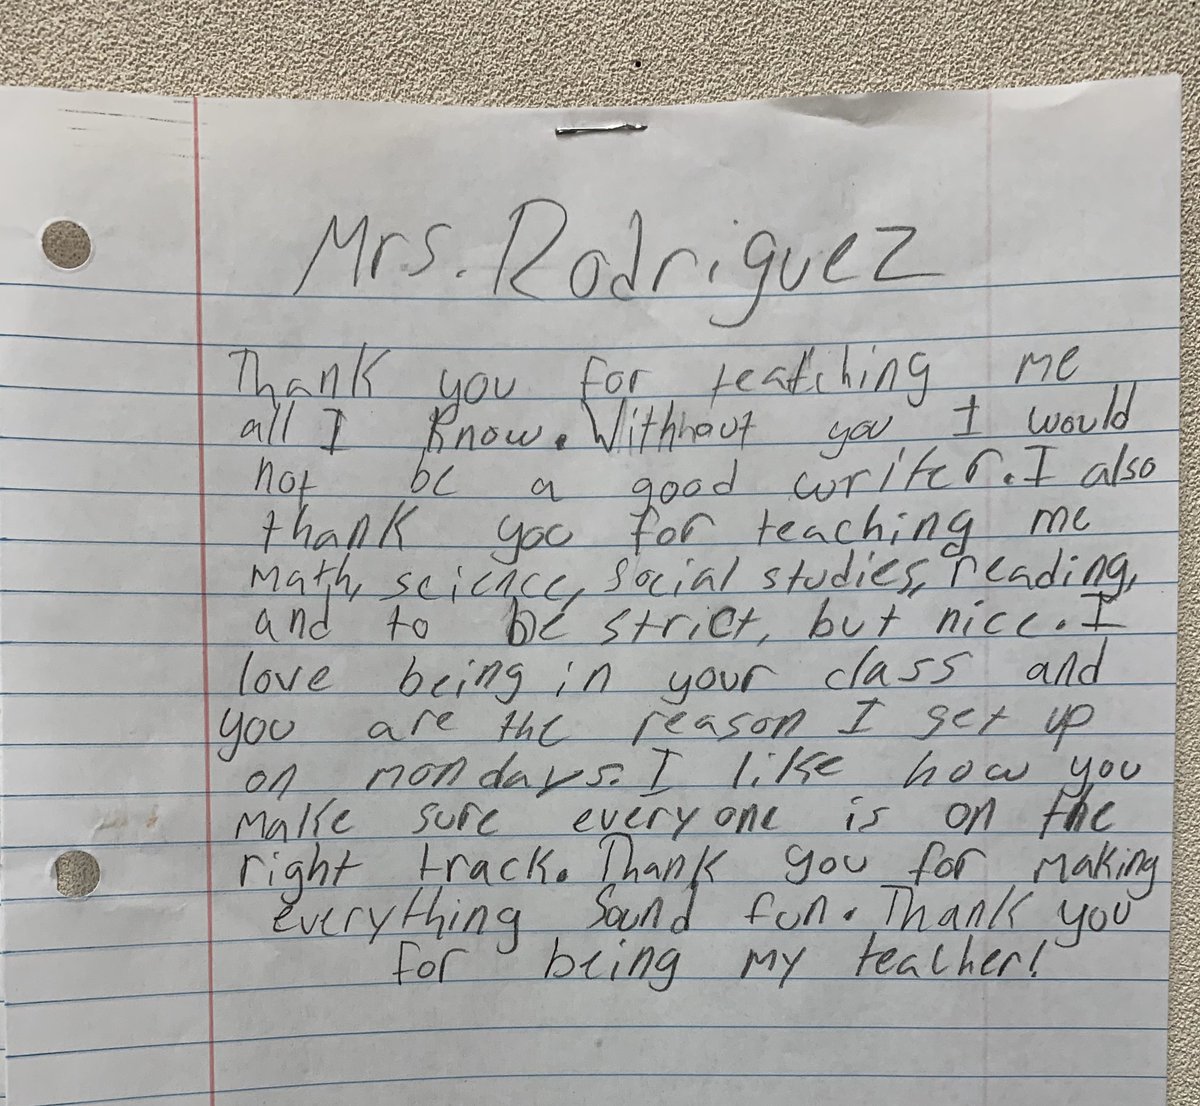 Mrs. Rodriguez
Thank you for teatching me
all I know. Withhout you I would
not be a good writer. I also
thank you for teaching me
math, science, social studies, reading,
and to be strict, but nice. I
love being in your class and
you are the reason I get up
on mondays. I like how you
make sure everyone is on the
right track. Thank you for making
everything sound fun. Thank you
for being my teacher!